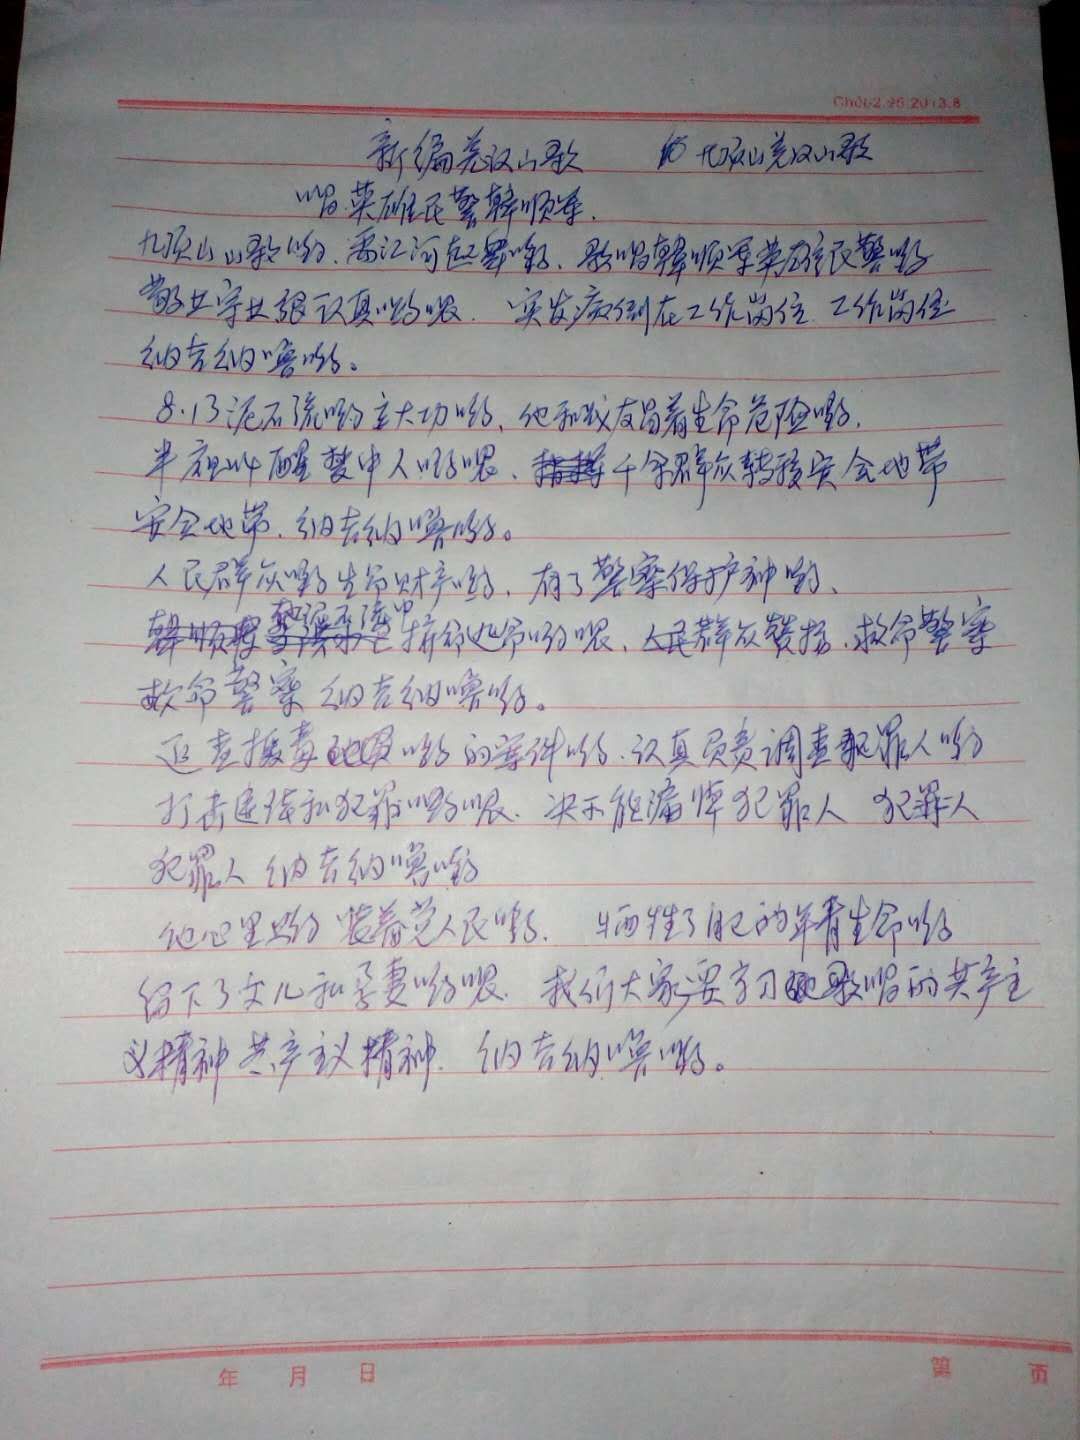 Chot-2.95.2013.8
新编羌汉山歌 九顶山羌汉山歌
唱英雄民警韩顺军.
九顶山山歌哟、 江河起舞哟、歌唱韩顺军英雄民警哟
敬业守业很认真哟喂. 突发病倒在工作岗位 工作岗位
纳吉纳嗬哟。
8.13泥石流哟立大功哟、他和战友冒着生命危险哟,
半夜 醒梦中人哟喂、千余群众转移安全地带
安全地带、纳吉纳嗬哟。
人民群众哟生命财产哟, 有了警察保护神哟、
哟喂、人民群众赞扬、救命警察
救命警察 纳吉纳嗬哟。
追查 毒 哟的案件哟、认真负责调查犯罪人哟
打击违法和犯罪哟喂、决不能漏掉犯罪人 犯罪人
犯罪人 纳吉纳嗬哟
他心里哟装着党人民哟、 牺牲了自己的年青生命哟
留下了女儿和 妻哟喂、我们大家要学习 歌唱的共产主
义精神 共产主义精神、纳吉纳嗬哟。
年 月 日 第 页